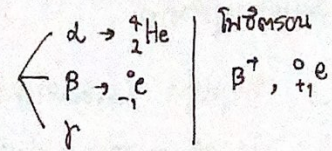 α → ⁴₂He
β → ⁰₋₁e
γ
โพซิตรอน
β⁺, ⁰₊₁e